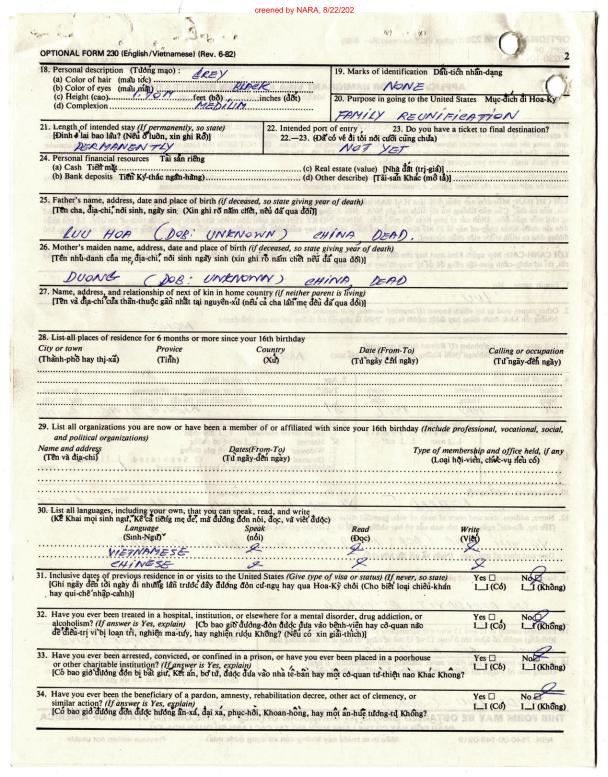 creened by NARA, 8/22/202
OPTIONAL FORM 230 (English/Vietnamese) (Rev. 6-82)
2
18. Personal description (Tướng mạo) :
(a) Color of hair (màu tóc) GREY
(b) Color of eyes (màu mắt) BLACK
(c) Height (cao) 1.70M feet (bộ) inches (đốt)
(d) Complexion MEDIUM
19. Marks of identification Dấu-tích nhân-dạng
NONE
20. Purpose in going to the United States Mục-đích đi Hoa-Kỳ
FAMILY REUNIFICATION
21. Length of intended stay (If permanently, so state)
[Định ở lại bao lâu? (Nếu ở luôn, xin ghi Rõ)]
PERMANENTLY
22. Intended port of entry 23. Do you have a ticket to final destination?
22.—23. (Đã có vé đi tới nơi cuối cùng chưa)
NOT YET
24. Personal financial resources Tài sản riêng
(a) Cash Tiền mặt (c) Real estate (value) [Nhà đất (trị-giá)]
(b) Bank deposits Tiền Ký-thác ngân-hàng) (d) Other describe) [Tài-sản Khác (mô tả)]
25. Father's name, address, date and place of birth (if deceased, so state giving year of death)
[Tên cha, địa-chỉ, nơi sinh, ngày sin: (Xin ghi rõ năm chết, nếu đã qua đời)]
LUU HOA (DOB: UNKNOWN) CHINA DEAD.
26. Mother's maiden name, address, date and place of birth (if deceased, so state giving year of death)
[Tên nhũ-danh của mẹ, địa-chỉ, nơi sinh ngày sinh (xin ghi rõ năm chết nếu đã qua đời)]
DUONG (DOB: UNKNOWN) CHINA DEAD
27. Name, address, and relationship of next of kin in home country (if neither parent is living)
[Tên và địa-chỉ của thân-thuộc gần nhất tại nguyên-xứ (nếu cả cha lẫn mẹ đều đã qua đời)]
28. List all places of residence for 6 months or more since your 16th birthday
City or town Provice Country Date (From-To) Calling or occupation
(Thành-phố hay thị-xã) (Tỉnh) (Xứ) (Từ ngày đến ngày) (Từ ngày-đến ngày)
29. List all organizations you are now or have been a member of or affiliated with since your 16th birthday (Include professional, vocational, social,
and political organizations)
Name and address Dates(From-To) Type of membership and office held, if any
(Tên và địa-chỉ) (Từ ngày-đến ngày) (Loại hội-viên, chức-vụ nếu có)
30. List all languages, including your own, that you can speak, read, and write
(Kê Khai mọi sinh ngữ, Kể cả tiếng mẹ đẻ, mà đương đơn nói, đọc, và viết được)
Language Speak Read Write
(Sinh-Ngữ) (nói) (Đọc) (Viết)
VIETNAMESE
CHINESE
31. Inclusive dates of previous residence in or visits to the United States (Give type of visa or status) (If never, so state) Yes No
[Ghi ngày đến tối ngày đi những lần trước đây đương đơn cư-ngụ hay qua Hoa-Kỳ chơi (Cho biết loại chiếu-khán (Có) (Không)
, hay qui-chế nhập-cảnh)]
32. Have you ever been treated in a hospital, institution, or elsewhere for a mental disorder, drug addiction, or Yes No
alcoholism? (If answer is Yes, explain) [Có bao giờ đương-đơn được đưa vào bệnh-viện hay cơ-quan nào (Có) (Không)
để điều-trị vì bị loạn trí, nghiện ma-tuý, hay nghiện rượu Không? (Nếu có xin giải-thích)]
33. Have you ever been arrested, convicted, or confined in a prison, or have you ever been placed in a poorhouse Yes No
or other charitable institution? (If answer is Yes, explain) (Có) (Không)
[Có bao giờ đương đơn bị bắt giữ, Kết án, bỏ tù, được đưa vào nhà tế-bần hay một cơ-quan từ-thiện nao Khác Không?
34. Have you ever been the beneficiary of a pardon, amnesty, rehabilitation decree, other act of clemency, or Yes No
similar action? (If answer is Yes, explain) (Có) (Không)
[Có bao giờ đương đơn được hưởng ân-xá, đại xá, phục-hồi, Khoan-hồng, hay một ân-huệ tương-tự Không?